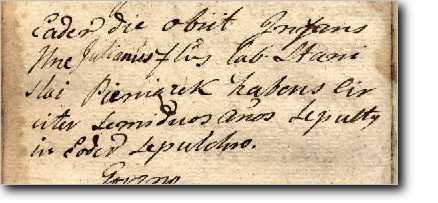 Eadem die obiit Infans
Nne Julianus filius lab Stani
slai Pieniązek habens Cir
citer Semiduos Anos Sepulty
in Eodem Sepulchro.